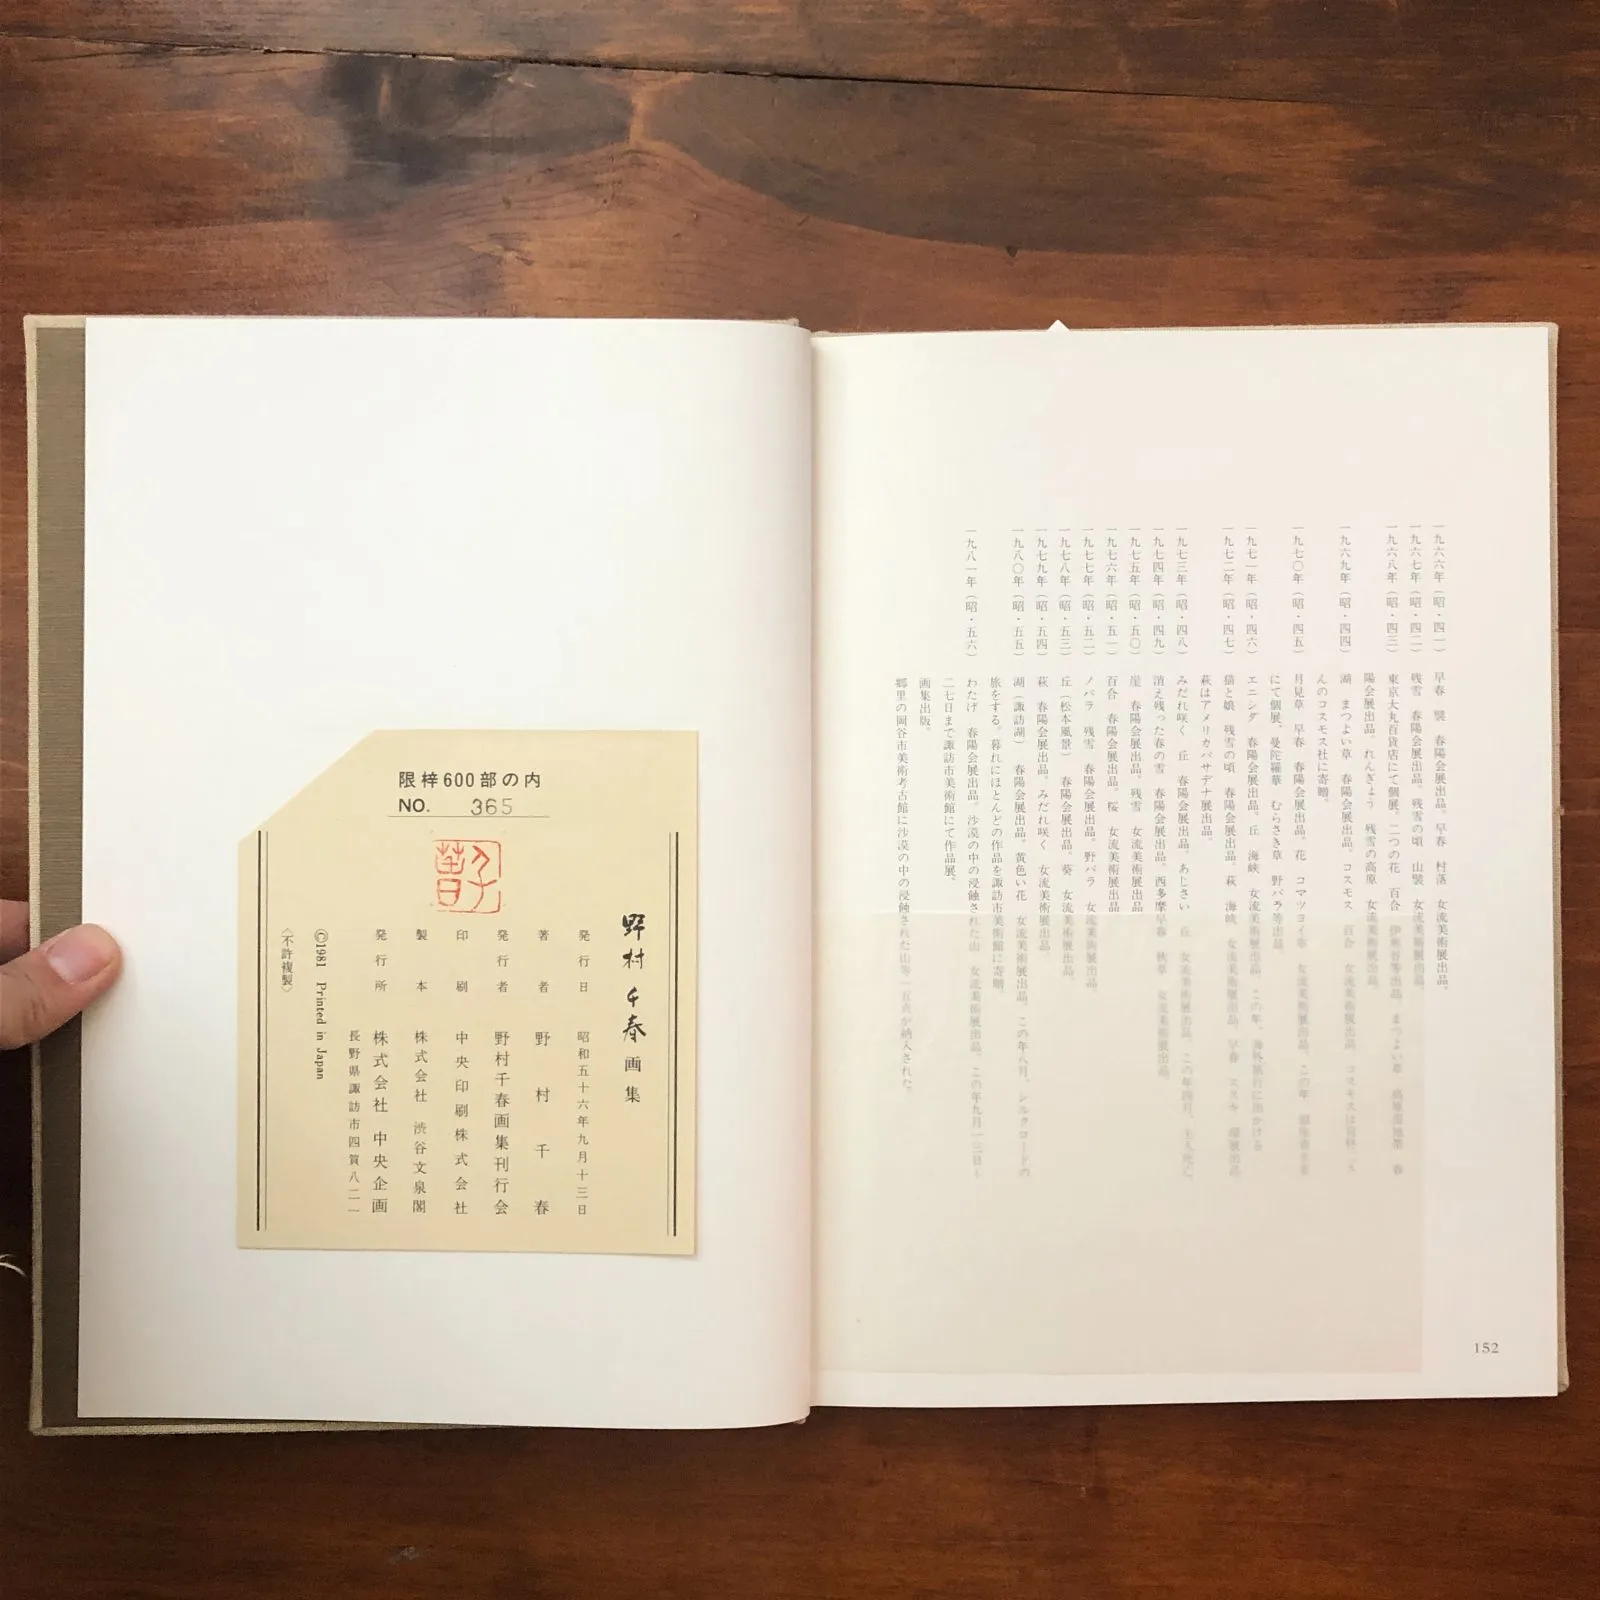 一九六六年(昭・四一) 早春 襲 春陽会展出品。早春 村落 女流美術展出品。
一九六七年(昭・四二) 残雪 春陽会展出品。残雪の頃 山襲 女流美術展出品。
一九六八年(昭・四三) 東京大丸百貨店にて個展。二つの花 百合 伊那谷等出品。まつよい草 高原湿地帯 春
陽会展出品。れんぎょう 残雪の高原 女流美術展出品。
一九六九年(昭・四四) 湖 まつよい草 春陽会展出品。コスモス 百合 女流美術展出品。コスモスは
んのコスモス社に寄贈。
一九七〇年(昭・四五) 月見草 早春 春陽会展出品。花 コマツヨイ草 女流美術展出品。この年
にて個展、曼陀羅華 むらさき草 野バラ等出品。
一九七一年(昭・四六) エニシダ 春陽会展出品。丘 海峡 女流美術展出品。この年、海外旅行に出かける
一九七二年(昭・四七) 猫と娘 残雪の頃 春陽会展出品。萩 海峡 女流美術展出品。早春 ススキ
萩はアメリカパサデナ展出品。
一九七三年(昭・四八) みだれ咲く 丘 春陽会展出品。あじさい 丘 女流美術展出品。この年四月、主人死亡
一九七四年(昭・四九) 消え残った春の雪 春陽会展出品。西多摩早春 秋草 女流美術展出品
一九七五年(昭・五〇) 崖 春陽会展出品。残雪 女流美術展出品
一九七六年(昭・五一) 百合 春陽会展出品。桜 女流美術展出品
一九七七年(昭・五二) ノバラ 残雪 春陽会展出品。野バラ 女流美術展出品。
一九七八年(昭・五三) 丘(松本風景) 春陽会展出品。葵 女流美術展出品。
一九七九年(昭・五四) 萩 春陽会展出品。みだれ咲く 女流美術展出品。
一九八〇年(昭・五五) 湖(諏訪湖) 春陽会展出品。黄色い花 女流美術展出品。この年八月、シルクロードの
旅をする。暮れにほとんどの作品を諏訪市美術館に寄贈。
一九八一年(昭・五六) わたげ 春陽会展出品。沙漠の中の浸蝕された山 女流美術展出品。この年九月一三日〜
二七日まで諏訪市美術館にて作品展。
画集出版。
郷里の岡谷市美術考古館に沙漠の中の浸蝕された山等一五点が納入された。
152
限梓600部の内
NO. 365
野村千春画集
発行日 昭和五十六年九月十三日
著者 野村千春
発行者 野村千春画集刊行会
印刷 中央印刷株式会社
製本 株式会社 渋谷文泉閣
発行所 株式会社 中央企画
長野県諏訪市四賀八二一
©1981 Printed in Japan
〈不許複製〉